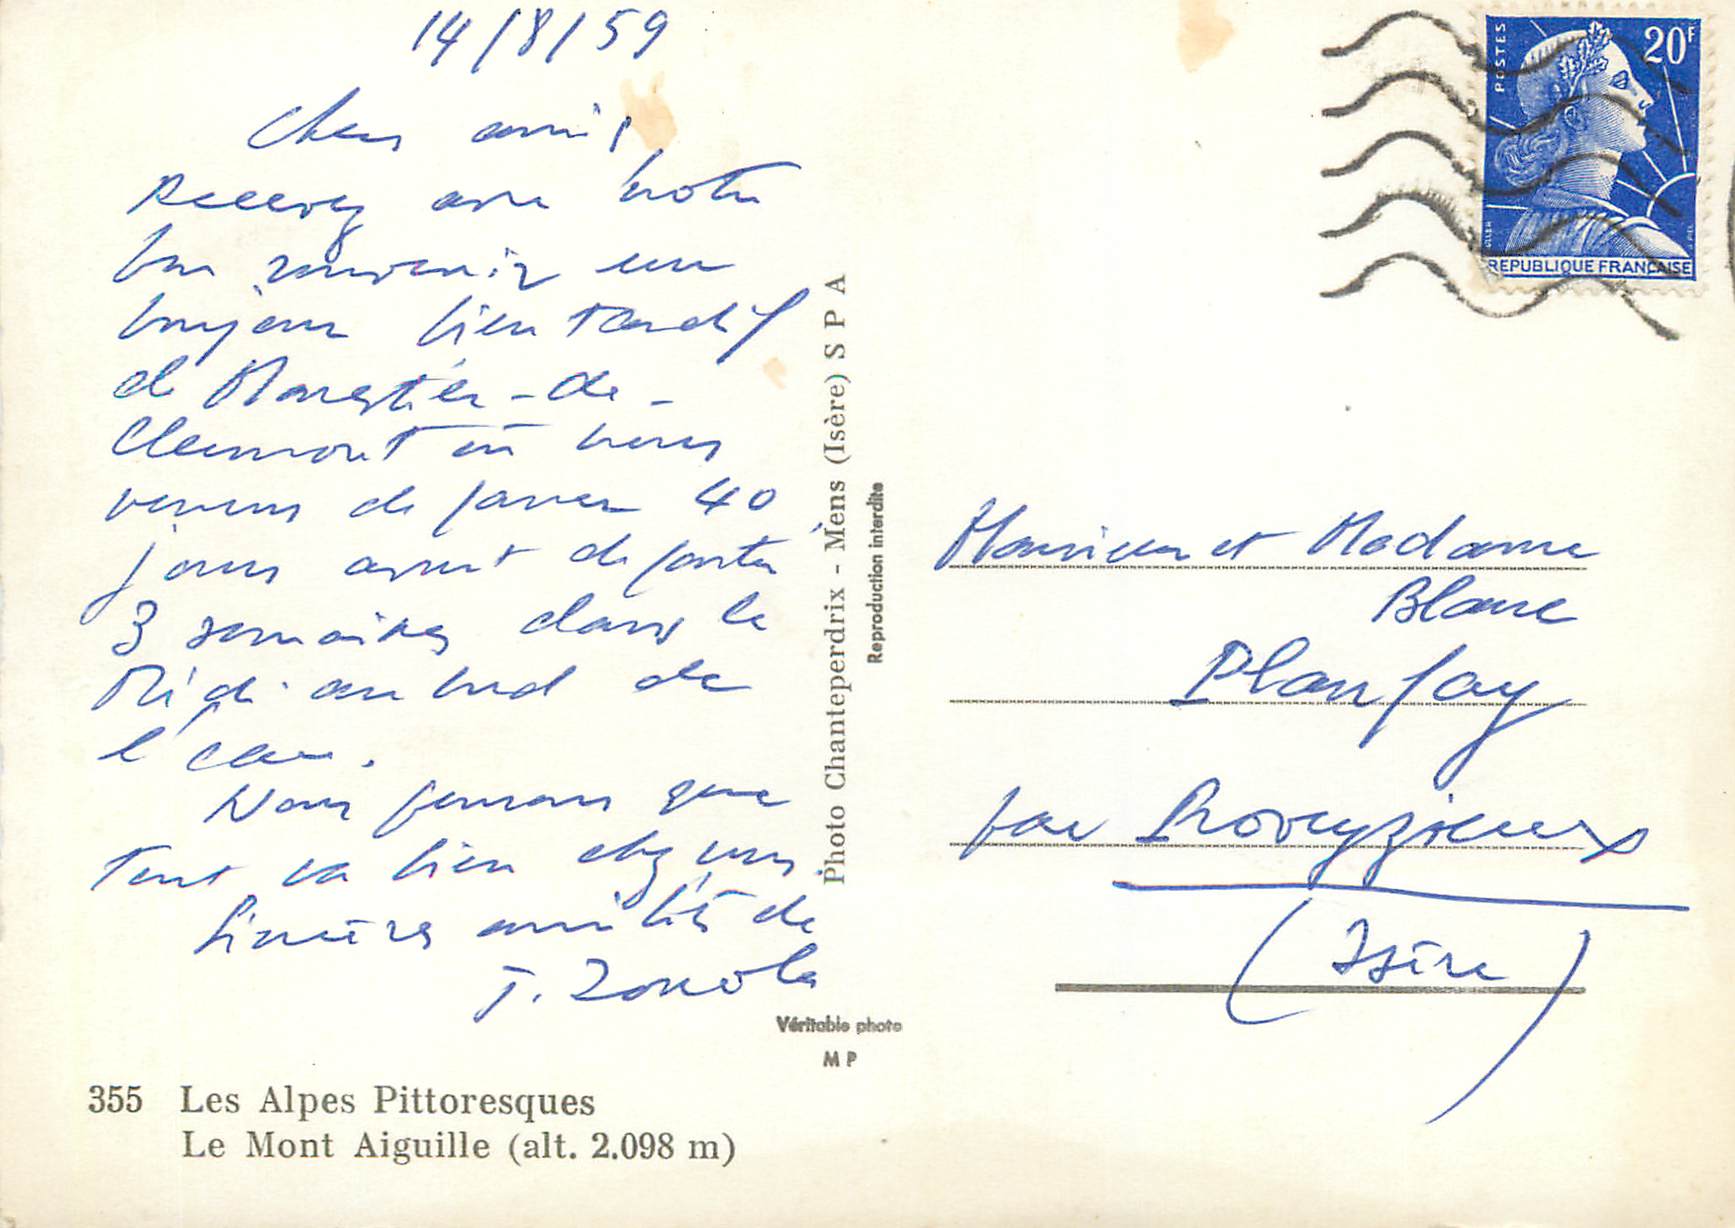 14/8/59
Chers amis,
Recevez avec notre
bon souvenir un
bonjour bien tardif
de Monestier-de-
Clermont où nous
venons de passer 40
jours avant de partir
3 semaines dans le
Midi au bord de
l'eau.
Nous pensons que
tout va bien chez vous
Sincères amitiés de
355 Les Alpes Pittoresques
Le Mont Aiguille (alt. 2.098 m)
Photo Chanteperdrix - Mens (Isère) S P A
Reproduction interdite
Véritable photo
M P
POSTES
20F
REPUBLIQUE FRANÇAISE
Monsieur et Madame
Blanc
Planfay
par Proveyzieux
(Isère)